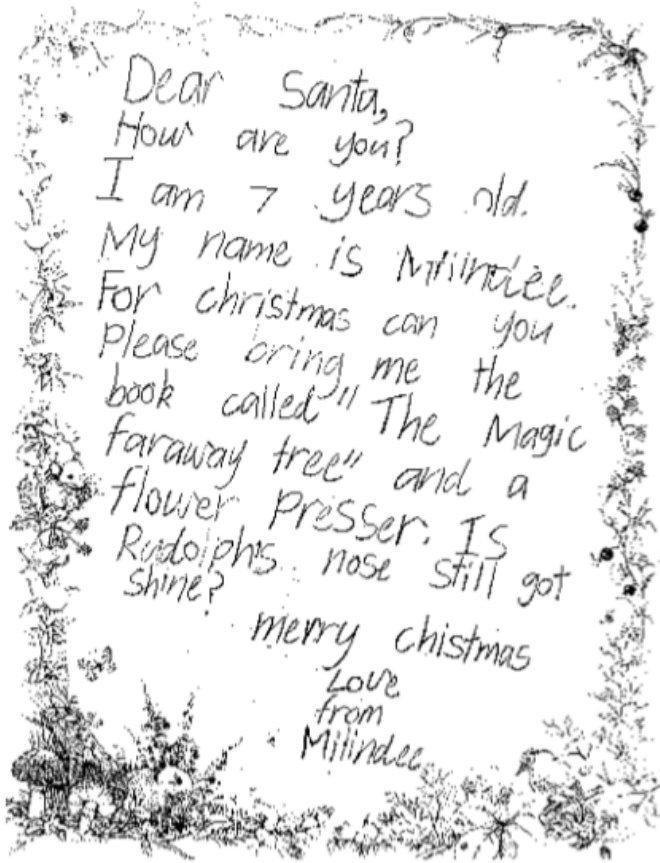 Dear Santa,
How are you?
I am 7 years old.
My name is Milindee.
For christmas can you
please bring me the
book called "The Magic
faraway tree" and a
flower presser. Is
Rudolph's nose still got
shine?
merry chistmas
Love
from
Milindee